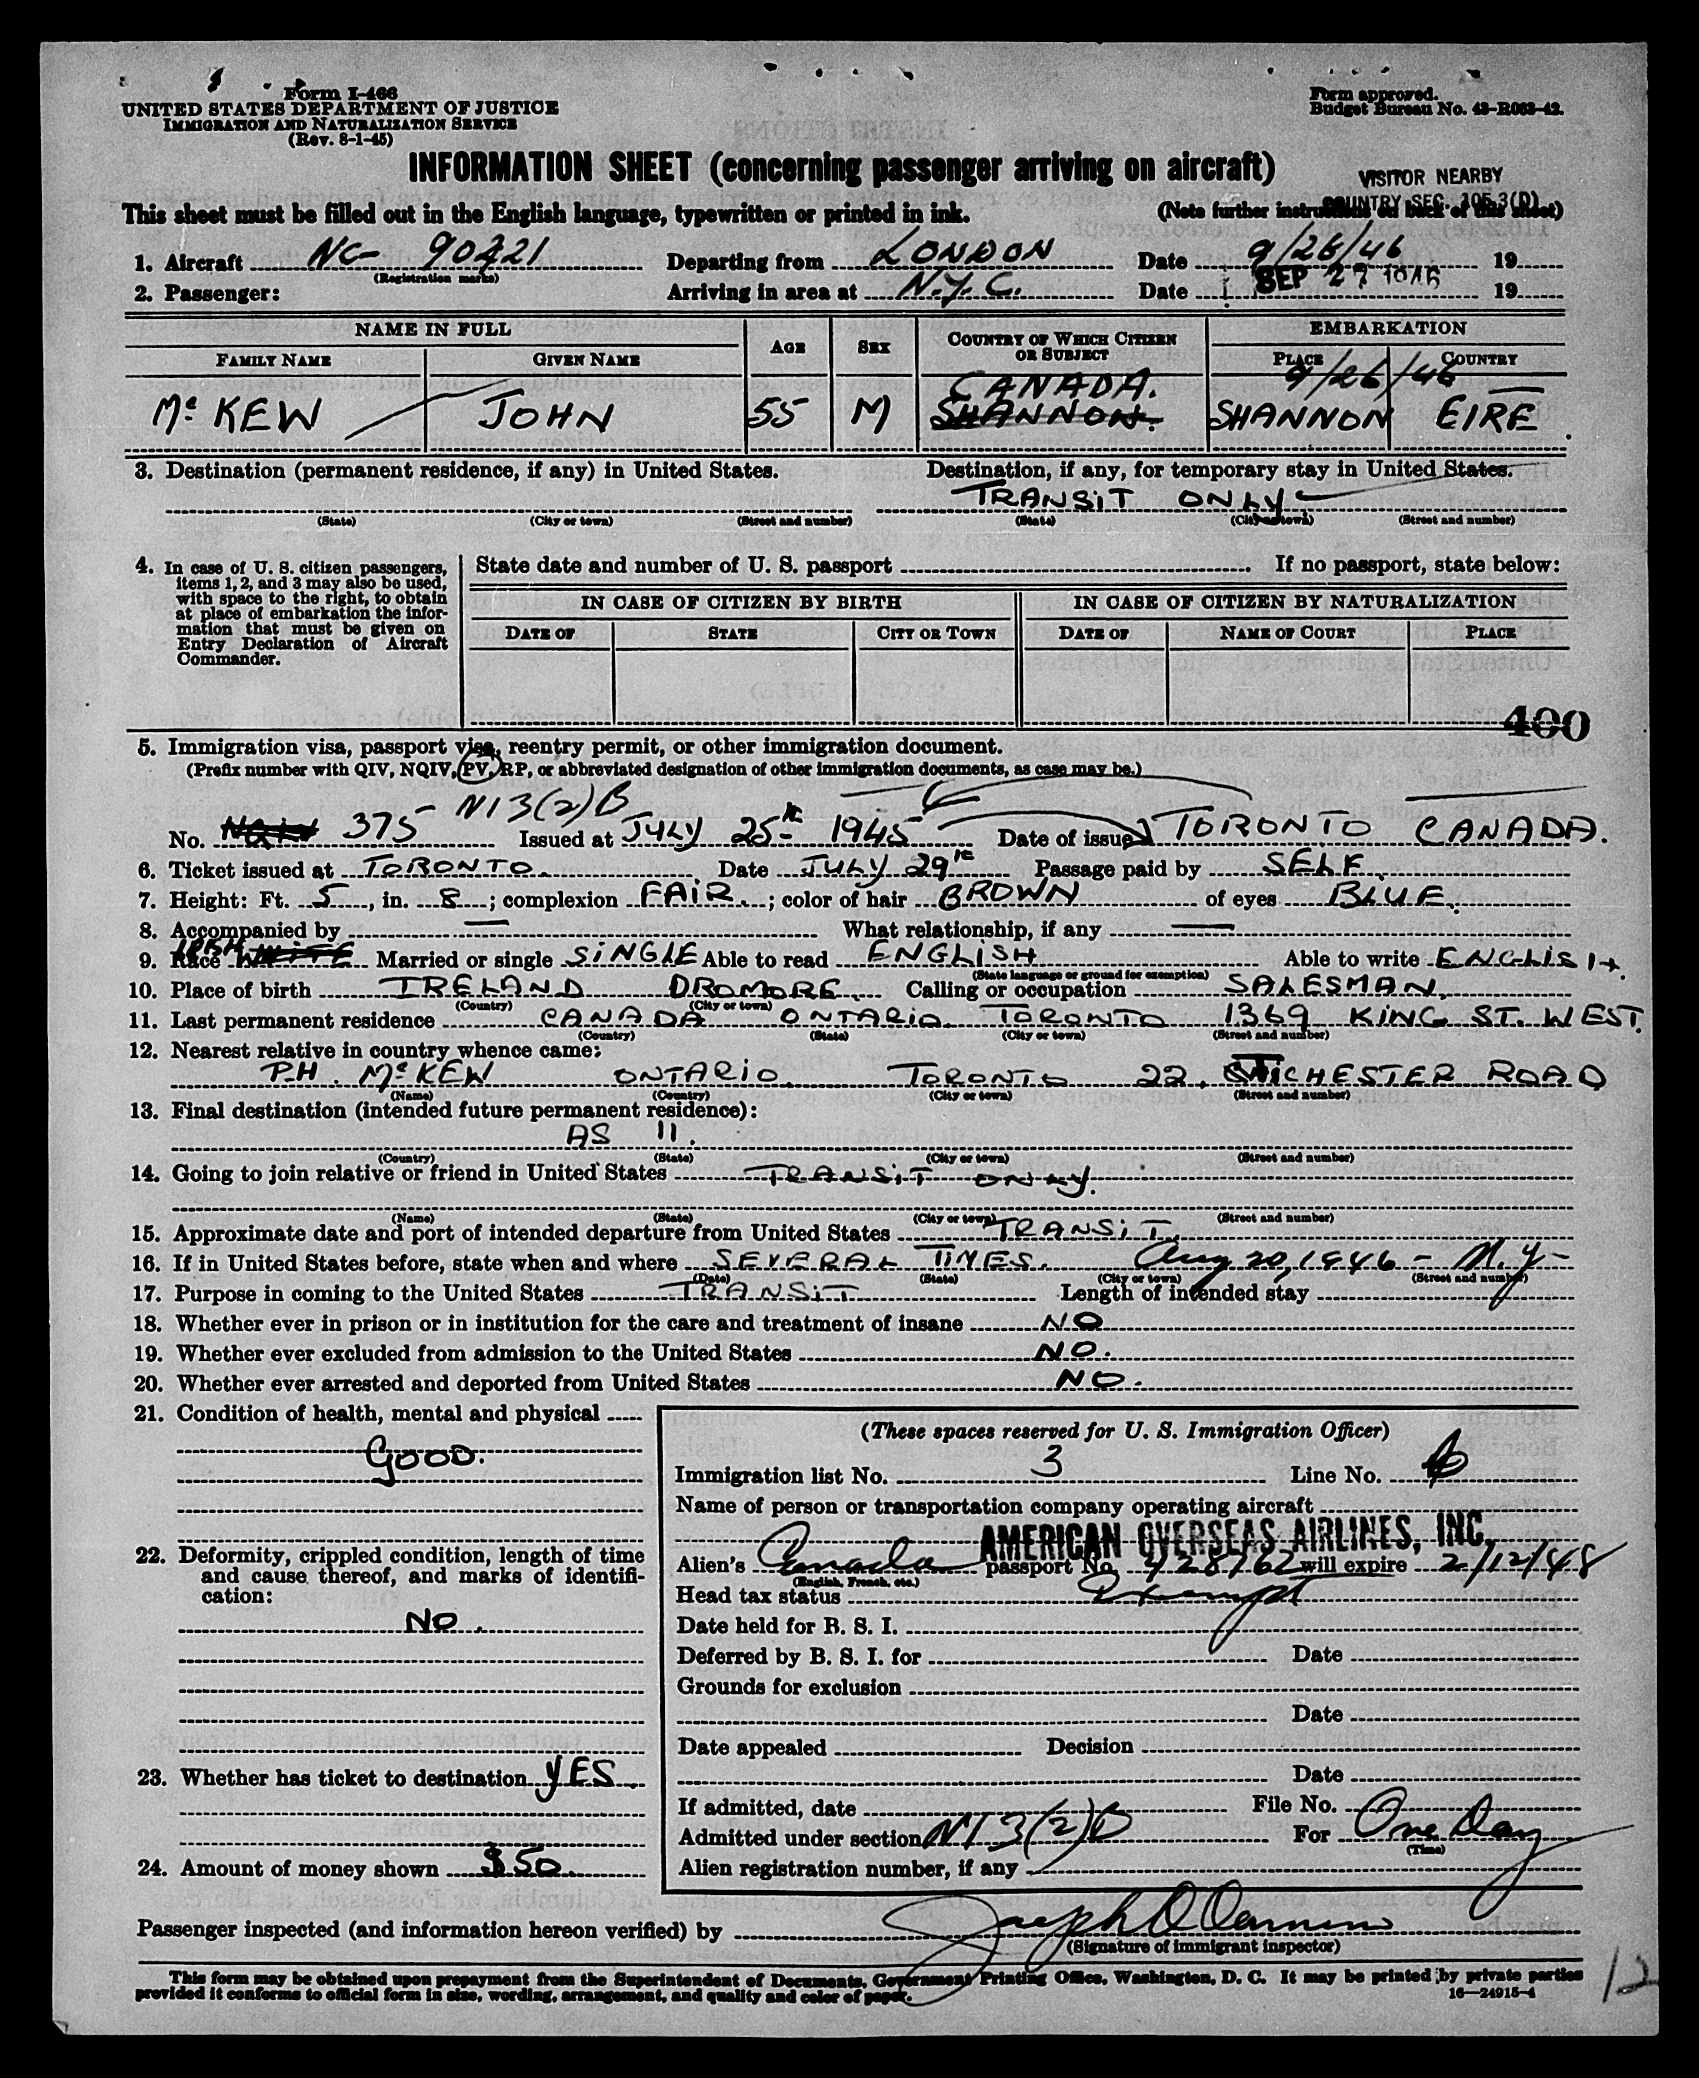 Form I-466
UNITED STATES DEPARTMENT OF JUSTICE
IMMIGRATION AND NATURALIZATION SERVICE
(Rev. 8-1-45)
Form approved.
Budget Bureau No. 43-R063-42.
INFORMATION SHEET (concerning passenger arriving on aircraft)
VISITOR NEARBY
COUNTRY SEC. 105.3(D)
This sheet must be filled out in the English language, typewritten or printed in ink. (Note further instructions on back of this sheet)
1. Aircraft NC- 90921 Departing from LONDON Date 9/26/46 19
(Registration marks)
2. Passenger: Arriving in area at N.Y.C. Date SEP 27 1946 19
NAME IN FULL AGE SEX COUNTRY OF WHICH CITIZEN OR SUBJECT EMBARKATION
FAMILY NAME GIVEN NAME PLACE COUNTRY
CANADA. 9/26/46
McKEW JOHN 55 M SHANNON. SHANNON EIRE
3. Destination (permanent residence, if any) in United States. Destination, if any, for temporary stay in United States.
TRANSIT ONLY
(State) (City or town) (Street and number) (State) (City or town) (Street and number)
4. In case of U. S. citizen passengers, items 1, 2, and 3 may also be used, with space to the right, to obtain at place of embarkation the information that must be given on Entry Declaration of Aircraft Commander.
State date and number of U. S. passport If no passport, state below:
IN CASE OF CITIZEN BY BIRTH IN CASE OF CITIZEN BY NATURALIZATION
DATE OF STATE CITY OR TOWN DATE OF NAME OF COURT PLACE
400
5. Immigration visa, passport visa, reentry permit, or other immigration document.
(Prefix number with QIV, NQIV, PV, RP, or abbreviated designation of other immigration documents, as case may be.)
NI 3(2)B
No. 375 Issued at JULY 25th 1945 Date of issue TORONTO CANADA.
6. Ticket issued at TORONTO. Date JULY 29th Passage paid by SELF.
7. Height: Ft. 5, in. 8; complexion FAIR.; color of hair BROWN of eyes BLUE.
8. Accompanied by — What relationship, if any —
IRISH
9. Race WHITE Married or single SINGLE Able to read ENGLISH Able to write ENGLISH.
(State language or ground for exemption)
10. Place of birth IRELAND DROMORE. Calling or occupation SALESMAN.
(Country) (City or town)
11. Last permanent residence CANADA ONTARIO. TORONTO 1369 KING ST. WEST.
(Country) (State) (City or town) (Street and number)
12. Nearest relative in country whence came:
P.H. McKEW ONTARIO. TORONTO 22. CHESTER ROAD
(Name) (Country) (City or town) (Street and number)
13. Final destination (intended future permanent residence):
AS 11.
(Country) (State) (City or town) (Street and number)
14. Going to join relative or friend in United States TRANSIT ONLY.
(Name) (State) (City or town) (Street and number)
15. Approximate date and port of intended departure from United States TRANSIT.
16. If in United States before, state when and where SEVERAL TIMES. Aug 20, 1946 - N.Y-
(Date) (State) (City or town) (Street and number)
17. Purpose in coming to the United States TRANSIT Length of intended stay
18. Whether ever in prison or in institution for the care and treatment of insane NO
19. Whether ever excluded from admission to the United States NO.
20. Whether ever arrested and deported from United States NO.
21. Condition of health, mental and physical
GOOD.
22. Deformity, crippled condition, length of time and cause thereof, and marks of identification:
NO.
23. Whether has ticket to destination YES.
24. Amount of money shown $50.
(These spaces reserved for U. S. Immigration Officer)
Immigration list No. 3 Line No.
Name of person or transportation company operating aircraft
AMERICAN OVERSEAS AIRLINES, INC.
Alien's Canada passport No. 428162 will expire 2/12/48
(English, French, etc.)
Head tax status Exempt
Date held for B. S. I.
Deferred by B. S. I. for Date
Grounds for exclusion
Date
Date appealed Decision
Date
If admitted, date File No.
Admitted under section NI 3(2)B For One Day
(Time)
Alien registration number, if any
Passenger inspected (and information hereon verified) by Joseph
(Signature of immigrant inspector)
This form may be obtained upon prepayment from the Superintendent of Documents, Government Printing Office, Washington, D. C. It may be printed by private parties
provided it conforms to official form in size, wording, arrangement, and quality and color of paper.
16—24915-4
12